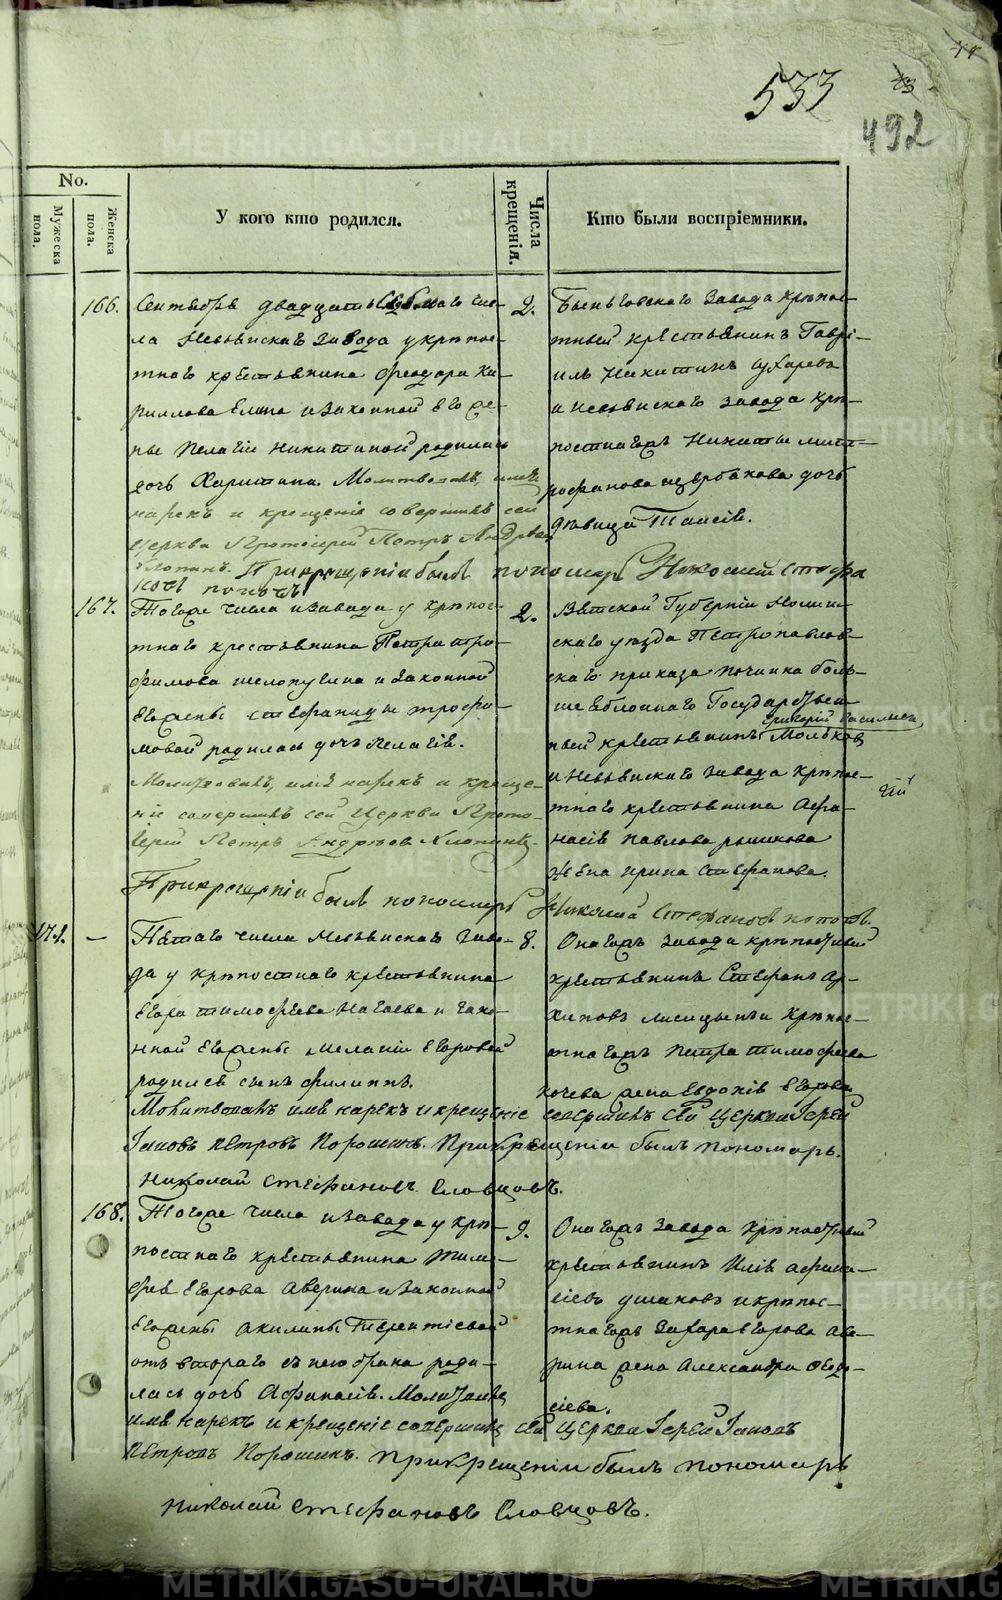 533
492
No.
Мужеска пола.
Женска пола.
У кого кто родился.
Числа крещенія.
Кто были воспріемники.
166.
Сентября двадцать седьмаго чис-
ла Невьянскаго завода у крѣпос-
тнаго крестьянина Феодора Ки-
риллова и законной его же-
ны Пелагіи Никитиной родилась
дочь Харитина. Молитвовалъ, имя
нарекъ и крещеніе совершилъ сей
Церкви Протоіерей Петръ Андреевъ
При крещеніи былъ пономарь Николай Стефа
новъ
2.
Быньговскаго завода крѣпос-
тный крестьянинъ Гаврі-
илъ Никитинъ
и Невьянскаго завода крѣ-
постнагожъ Никиты Мит-
рофанова Щербакова дочь
дѣвица Таисія.
167.
Тогоже числа и завода у крѣпос-
тнаго крестьянина Петра Тро-
фимова Шелопугина и законной
его жены Стефаниды Трофи-
мовой родилась дочь Пелагія.
Молитвовалъ, имя нарекъ и креще-
ніе совершилъ сей Церкви Прото-
іерей Петръ Андреевъ
При крещеніи былъ пономарь Николай Стефановъ
2.
Вятской Губерніи Нолин-
скаго уѣзда Петропавлов-
скаго приказа починка Боль-
ше Государствен
Григорій Васильевъ
ный крестьянинъ
и Невьянскаго завода крѣпос-
тнаго крестьянина Афа-
насія Павлова
жена Ирина Стефанова.
171.
–
Пятаго числа Невьянскаго заво-
да у крѣпостнаго крестьянина
Егора Тимофеева Нагаева и зако-
нной его жены Меланіи Егоровой
родился сынъ Филиппъ.
Молитвовалъ имя нарекъ и крещеніе совершилъ сей Церкви Іерей
Іаковъ Петровъ Порошинъ. При крещеніи былъ пономарь
Николай Стефановъ Словцовъ.
8.
Онагожъ завода крѣпостный
крестьянинъ Стефанъ Ар-
хиповъ Лисицынъ и крѣпос-
тнагожъ Петра Тимофеева
жена Евдокія Егорова
168.
Тогоже числа и завода у крѣ-
постнаго крестьянина Тимо-
фея Егорова Аверина и законной
его жены Акилины Терентіевой
отъ втораго съ нею брака роди-
лась дочь Афанасія. Молитвовалъ
имя нарекъ и крещеніе совершилъ сей Церкви Іерей Іаковъ
Петровъ Порошинъ. При крещеніи былъ пономарь
Николай Стефановъ Словцовъ.
9.
Онагожъ завода крѣпостный
крестьянинъ Илія Афана-
сіевъ Ушаковъ и крѣпос-
тнагожъ Захара Егорова Аве-
рина жена Александра Феодо-
сіева.
METRIKI.GASO-URAL.RU